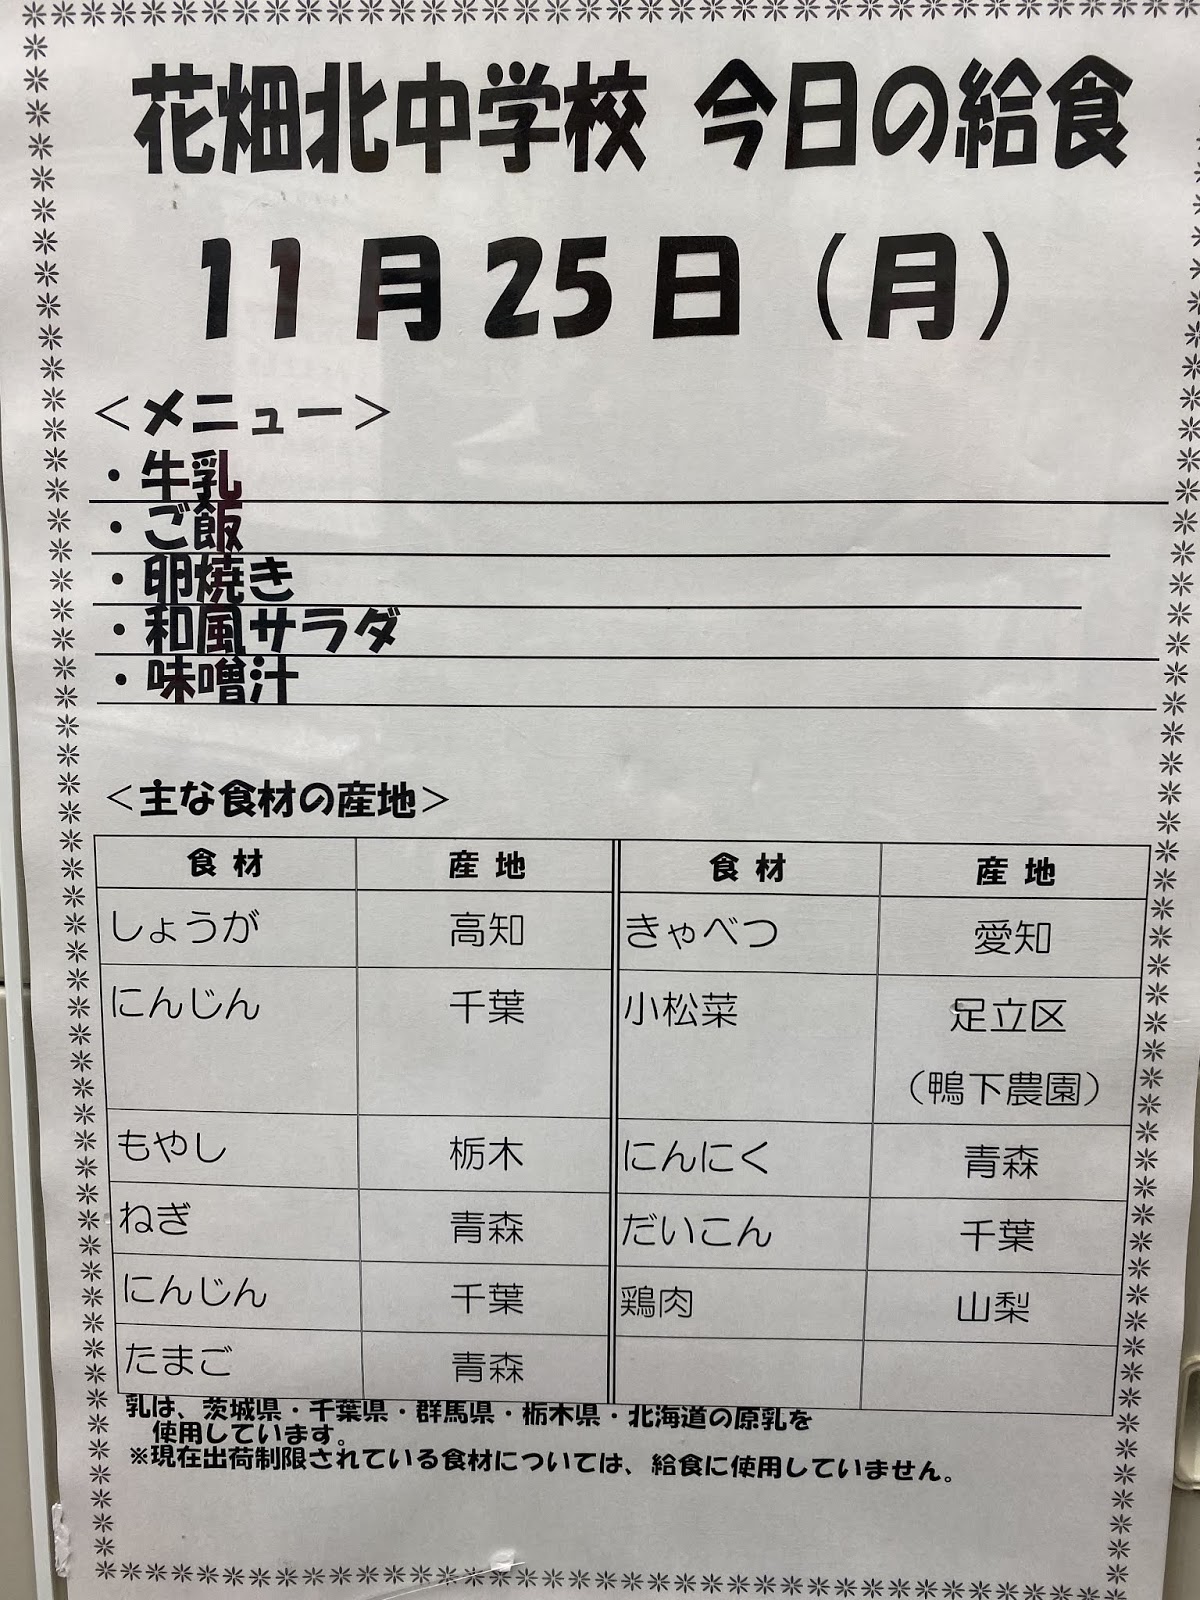 花畑北中学校 今日の給食
11月25日（月）
＜メニュー＞
・牛乳
・ご飯
・卵焼き
・和風サラダ
・味噌汁
＜主な食材の産地＞
食材 産地 食材 産地
しょうが 高知 きゃべつ 愛知
にんじん 千葉 小松菜 足立区
（鴨下農園）
もやし 栃木 にんにく 青森
ねぎ 青森 だいこん 千葉
にんじん 千葉 鶏肉 山梨
たまご 青森
乳は、茨城県・千葉県・群馬県・栃木県・北海道の原乳を
使用しています。
※現在出荷制限されている食材については、給食に使用していません。